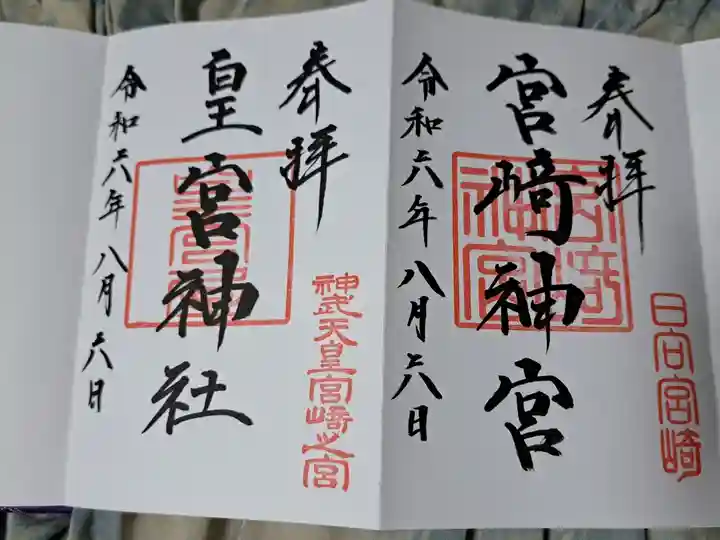 奉拝
日向宮崎
宮崎神宮
宮崎神宮
令和六年八月六日
奉拝
神武天皇宮崎之宮
皇宮神社
令和六年八月六日